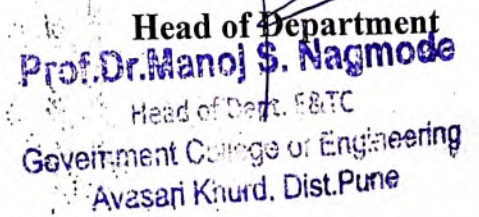 Head of Department
Prof.Dr.Manoj S. Nagmode
Head of Dept. E&TC
Government College of Engineering
Avasari Khurd, Dist.Pune